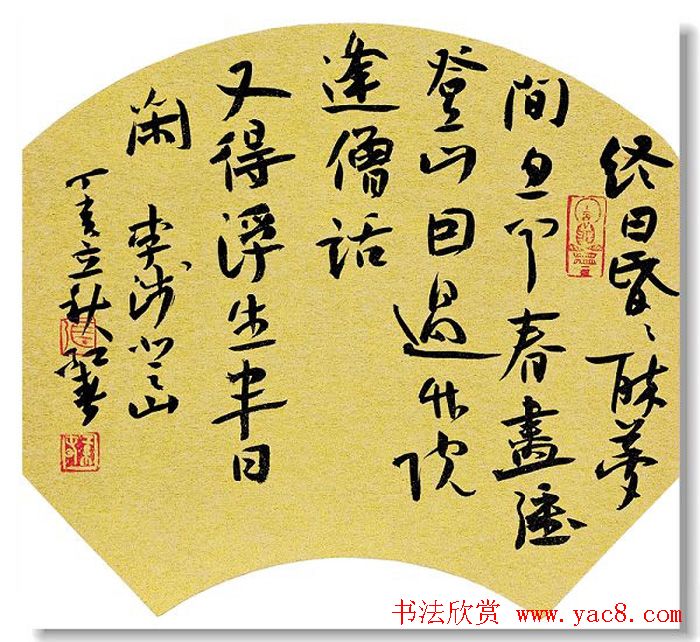 终日昏昏醉夢
间忽闻春盡强
登山因過竹院
逢僧话
又得浮生半日
闲 李涉登山
丁亥立秋
书法欣赏 www.yac8.com